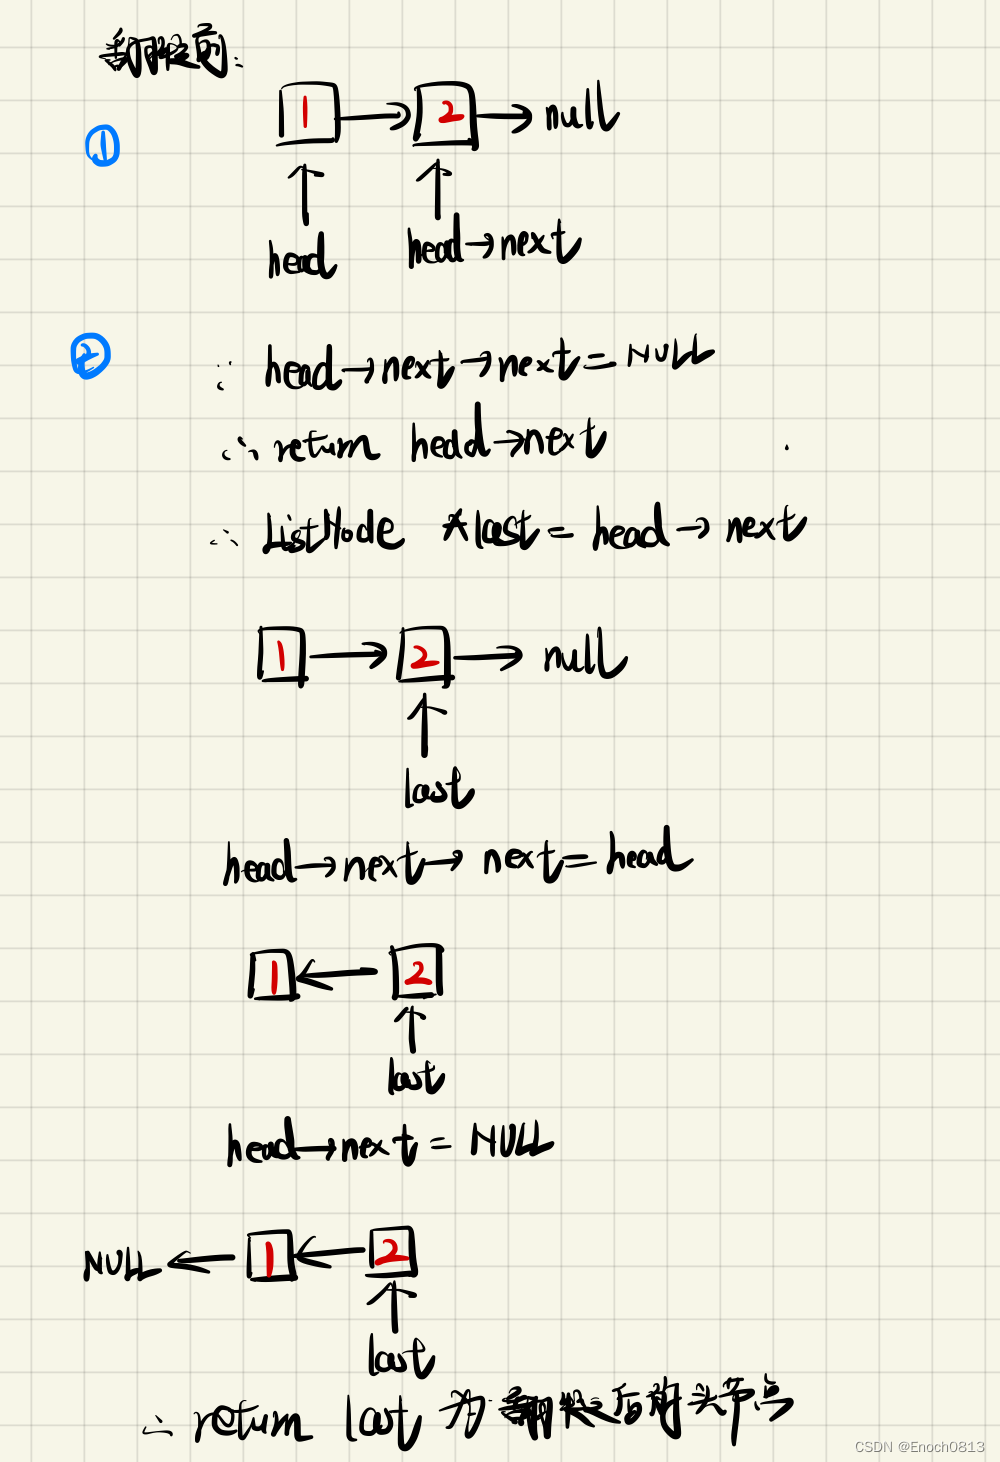 翻转之前:
1 2 null
①
head head→next
② ∵ head→next→next=NULL
∴ return head→next
∴ ListNode *last = head→next
1 2 null
last
head→next→next=head
1 2
last
head→next = NULL
NULL 1 2
last
∴ return last 为翻转之后的头节点
CSDN @Enoch0813